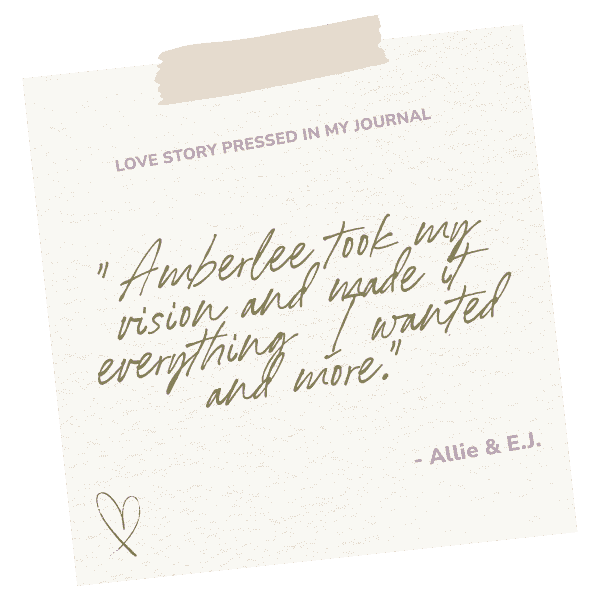 LOVE STORY PRESSED IN MY JOURNAL
" Amberlee took my
vision and made it
everything I wanted
and more."
- Allie & E.J.